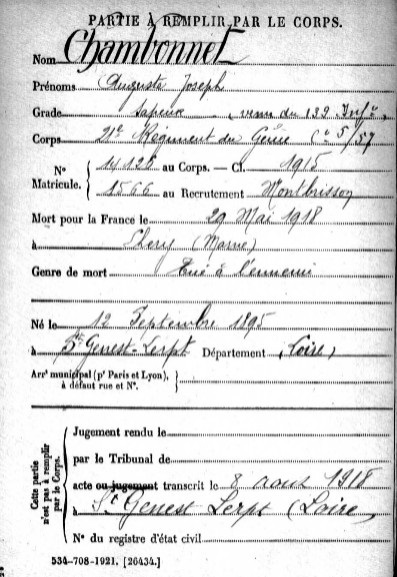 PARTIE À REMPLIR PAR LE CORPS.
Nom Chambonnet
Prénoms Auguste Joseph
Grade sapeur (venu du 139 Infie)
Corps 21e Régiment du Génie Cie 5/57
No Matricule. 14126 au Corps. — Cl. 1915
1566 au Recrutement Montbrison
Mort pour la France le 29 Mai 1918
à (Marne)
Genre de mort Tué à l'ennemi
Né le 12 Septembre 1895
à St Genest-Lerpt Département (Loire)
Arrt municipal (pr Paris et Lyon), à défaut rue et No.
Cette partie n'est pas à remplir par le Corps.
Jugement rendu le
par le Tribunal de
acte ou jugement transcrit le 8 aout 1918
à St Genest Lerpt (Loire)
No du registre d'état civil
534-708-1921. [26434.]